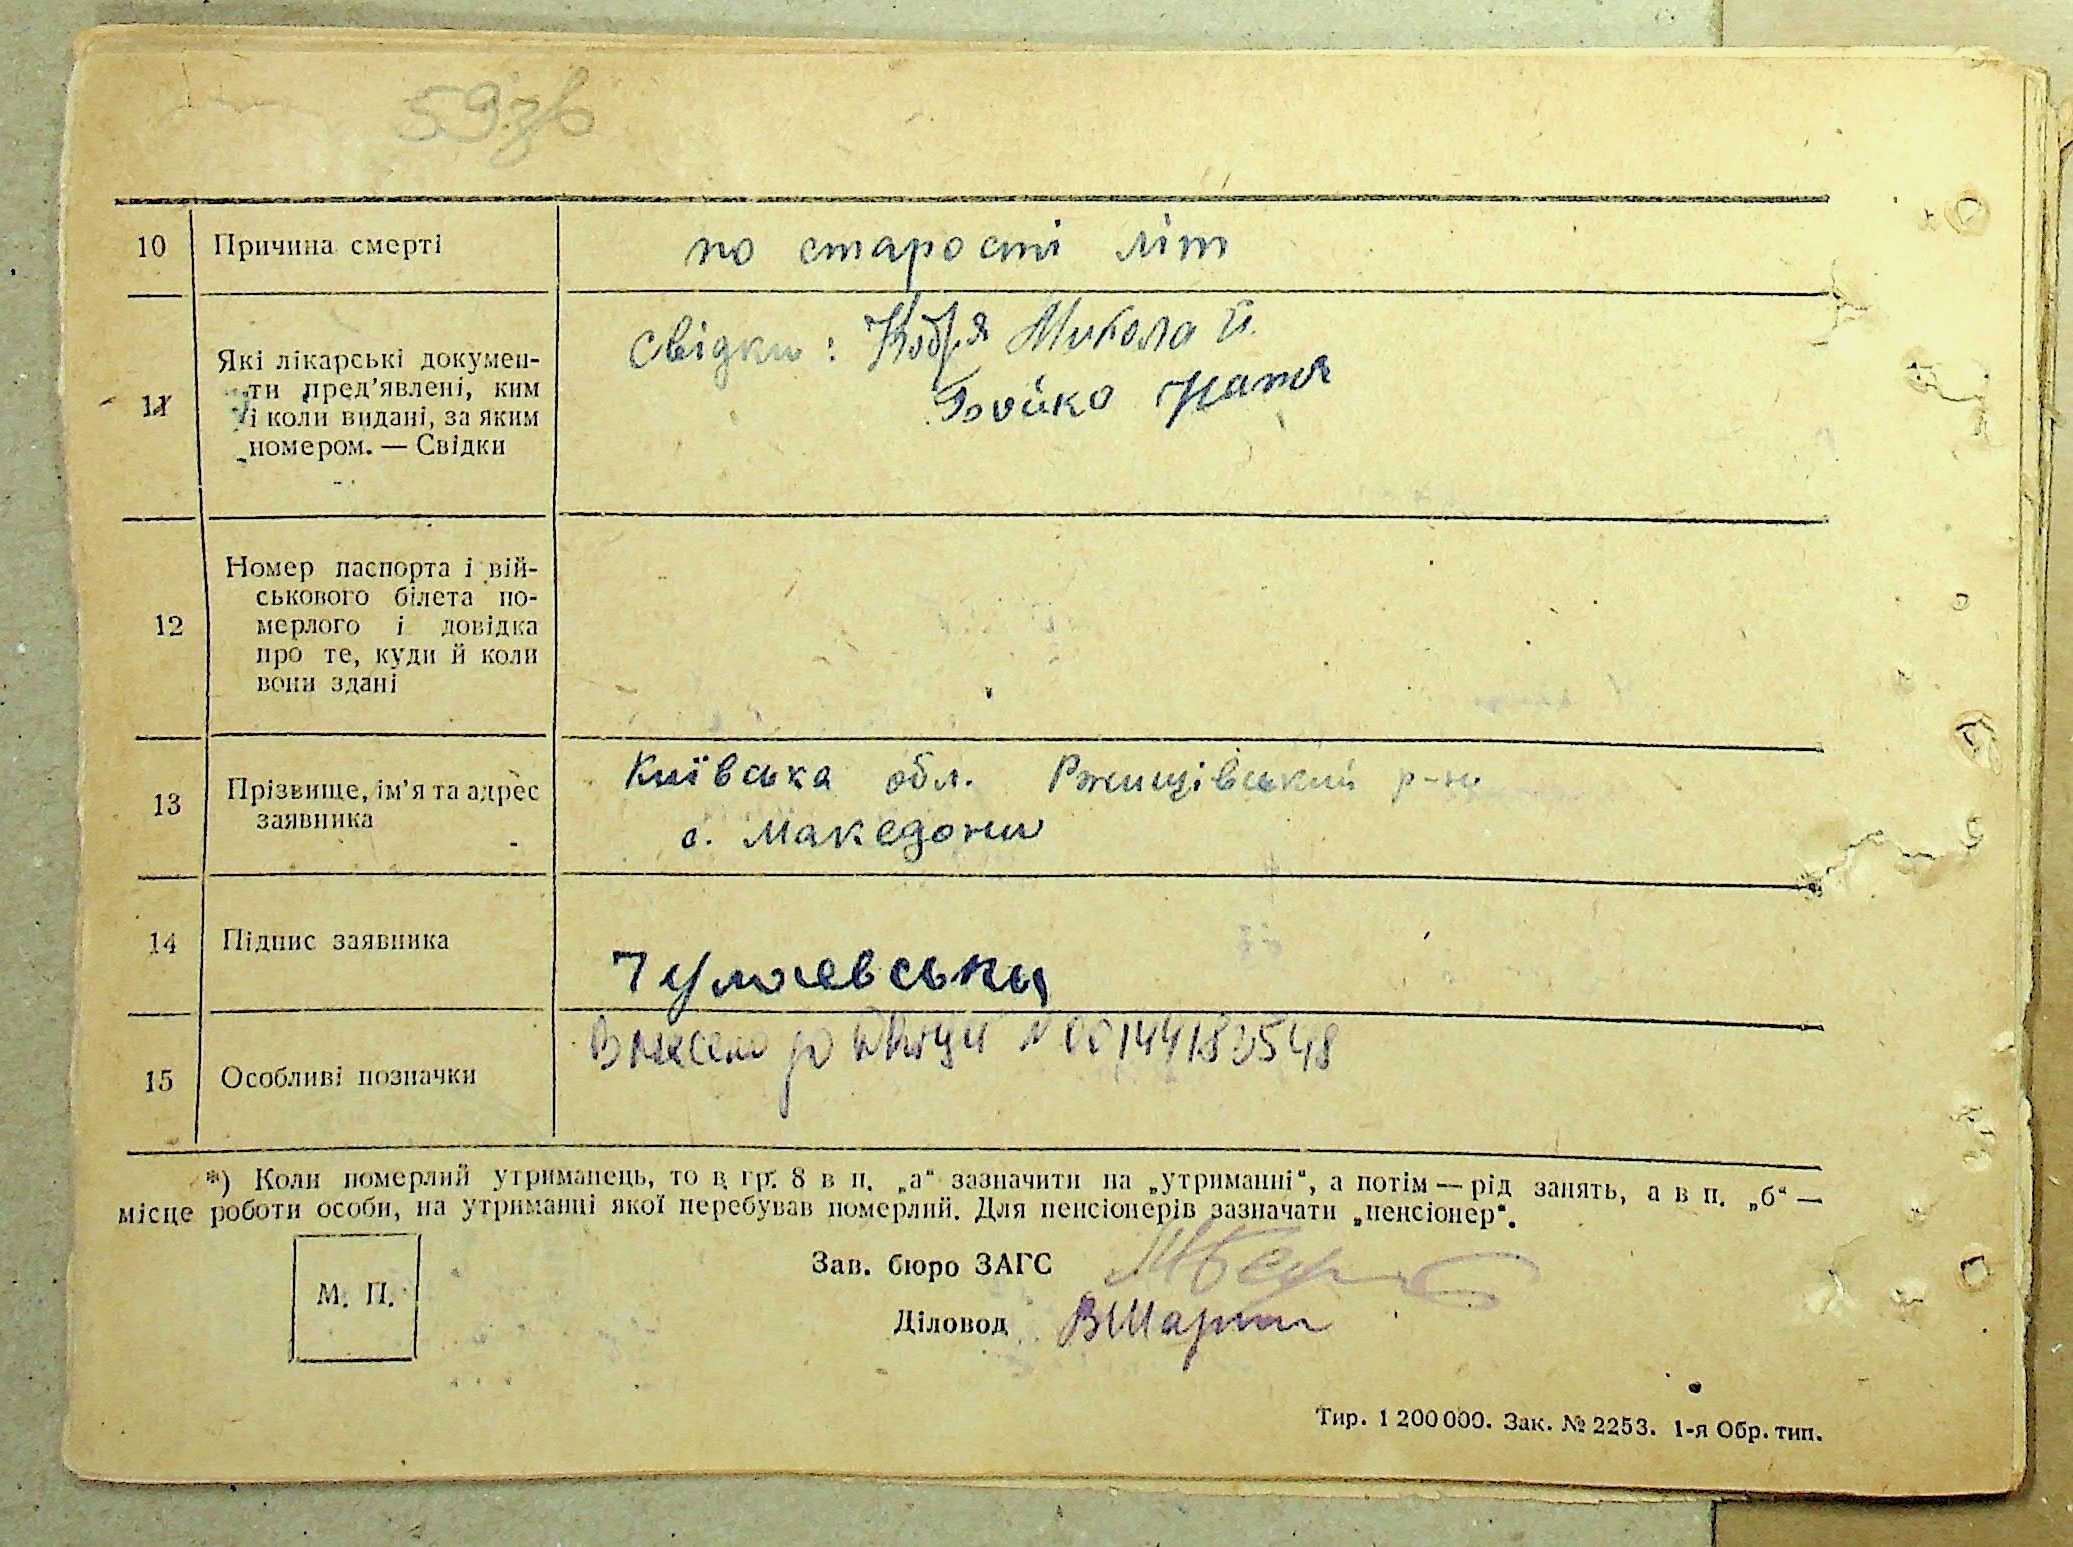 59зв
10 Причина смерті по старості літ
11 Які лікарські докумен-
ти пред’явлені, ким
і коли видані, за яким
номером. — Свідки
Свідки: Кобря Микола Й.
Бойко Настя
12 Номер паспорта і вій-
ськового білета по-
мерлого і довідка
про те, куди й коли
вони здані
13 Прізвище, ім’я та адрес
заявника
Київська обл. Ржищівський р-н
с. Македони
14 Підпис заявника
15 Особливі позначки
Внесено до
*) Коли померлий утриманець, то в гр. 8 в п. „а“ зазначити на „утриманні“, а потім — рід занять, а в п. „б“ —
місце роботи особи, на утриманні якої перебував померлий. Для пенсіонерів зазначати „пенсіонер“.
М. П.
Зав. бюро ЗАГС
Діловод
Тир. 1 200 000. Зак. № 2253. 1-я Обр. тип.